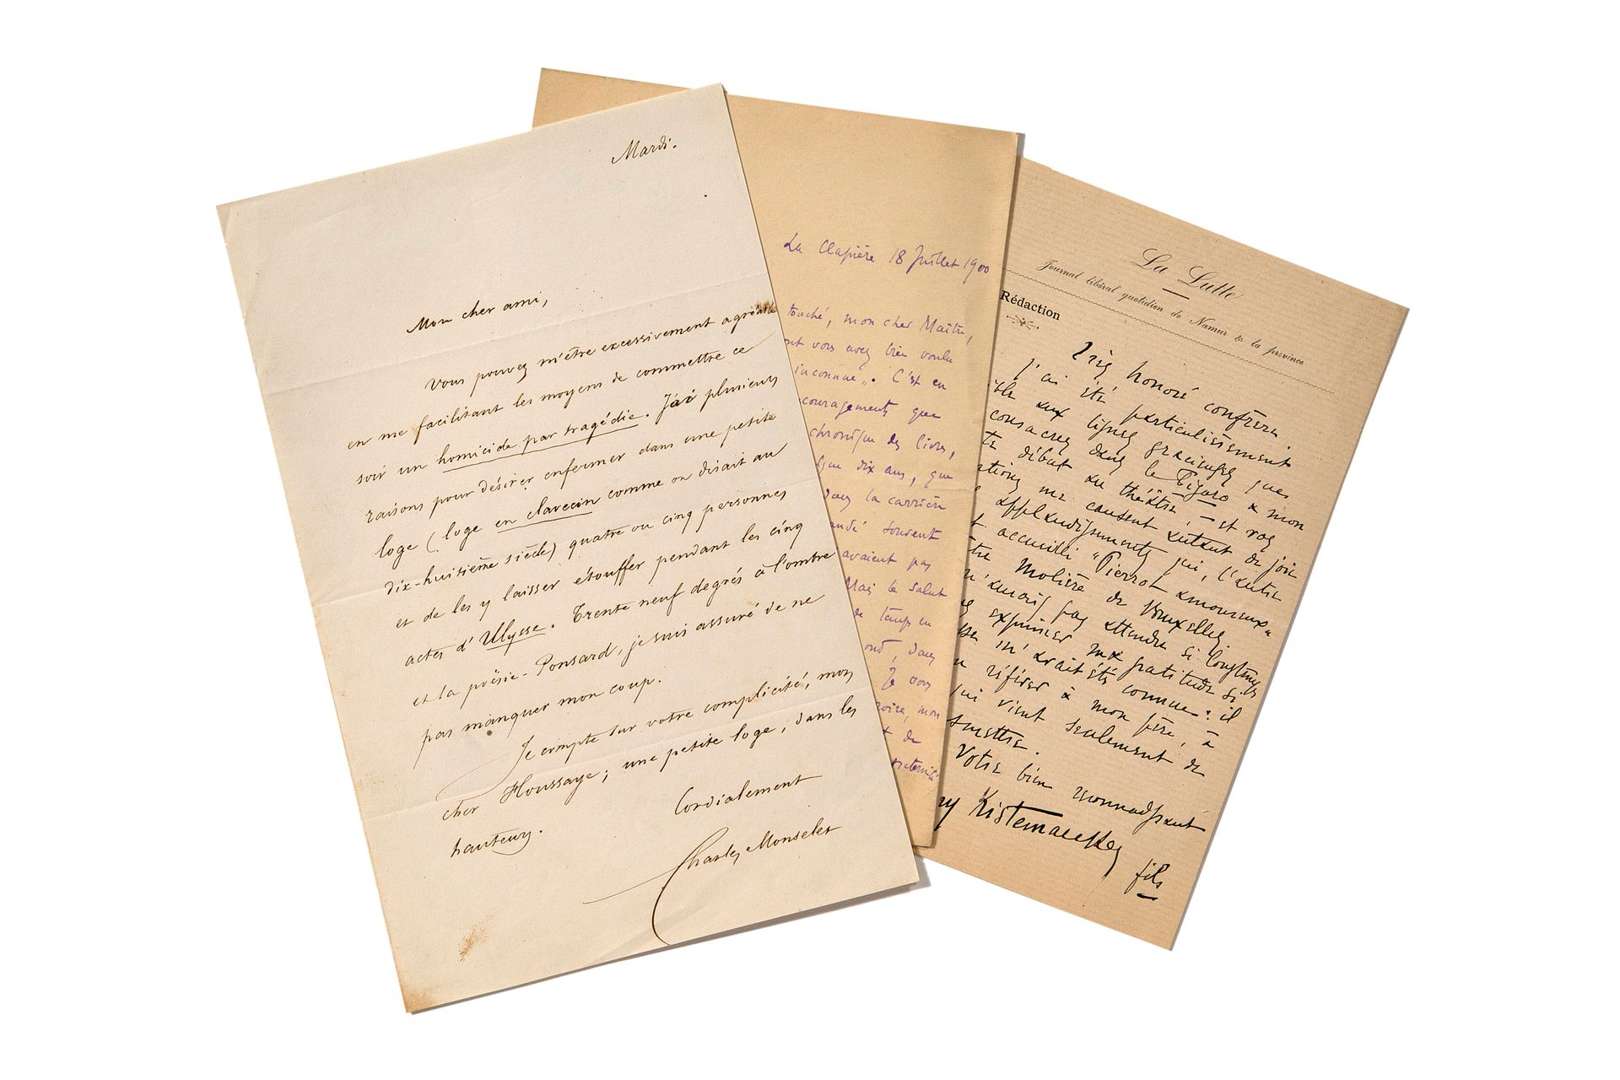 Mardi.
Mon cher ami,
Vous pouvez m'être excessivement agréable
en me facilitant les moyens de commettre ce
soir un homicide par tragédie. J'ai plusieurs
raisons pour désirer enfermer dans une petite
loge (loge en clavecin comme on disait au
dix-huitième siècle) quatre ou cinq personnes
et de les y laisser étouffer pendant les cinq
actes d'Ulysse. Trente neuf degrés à l'ombre
et la poésie-Ponsard, je suis assuré de ne
pas manquer mon coup.
Je compte sur votre complicité, mon
cher Houssaye; une petite loge, dans les
hauteurs.
Cordialement
Charles Monselet
La Clapière 18 Juillet 1900
touché, mon cher Maître,
vous avez bien voulu
inconnue". C'est en
couragements que
chronique des livres,
dix ans, que
dans la carrière
souvent
avaient pas
Mais le salut
de temps en
dans
Je vous
mon
de
La Lutte
Journal libéral quotidien de Namur & de la province
Rédaction
Très honoré confrère.
J'ai été particulièrement
aux lignes gracieuses que
consacrez dans le Figaro à mon
début au théâtre, - et vos
me causent autant de joie
applaudissements qui, l'autre
accueilli "Pierrot amoureux"
Molière de Bruxelles.
n'aurais pas attendu si longtemps
exprimer ma gratitude si
m'avait été connue: il
référer à mon père, à
qui vient seulement de
Votre bien reconnaissant
ry Kistemaeckers
fils